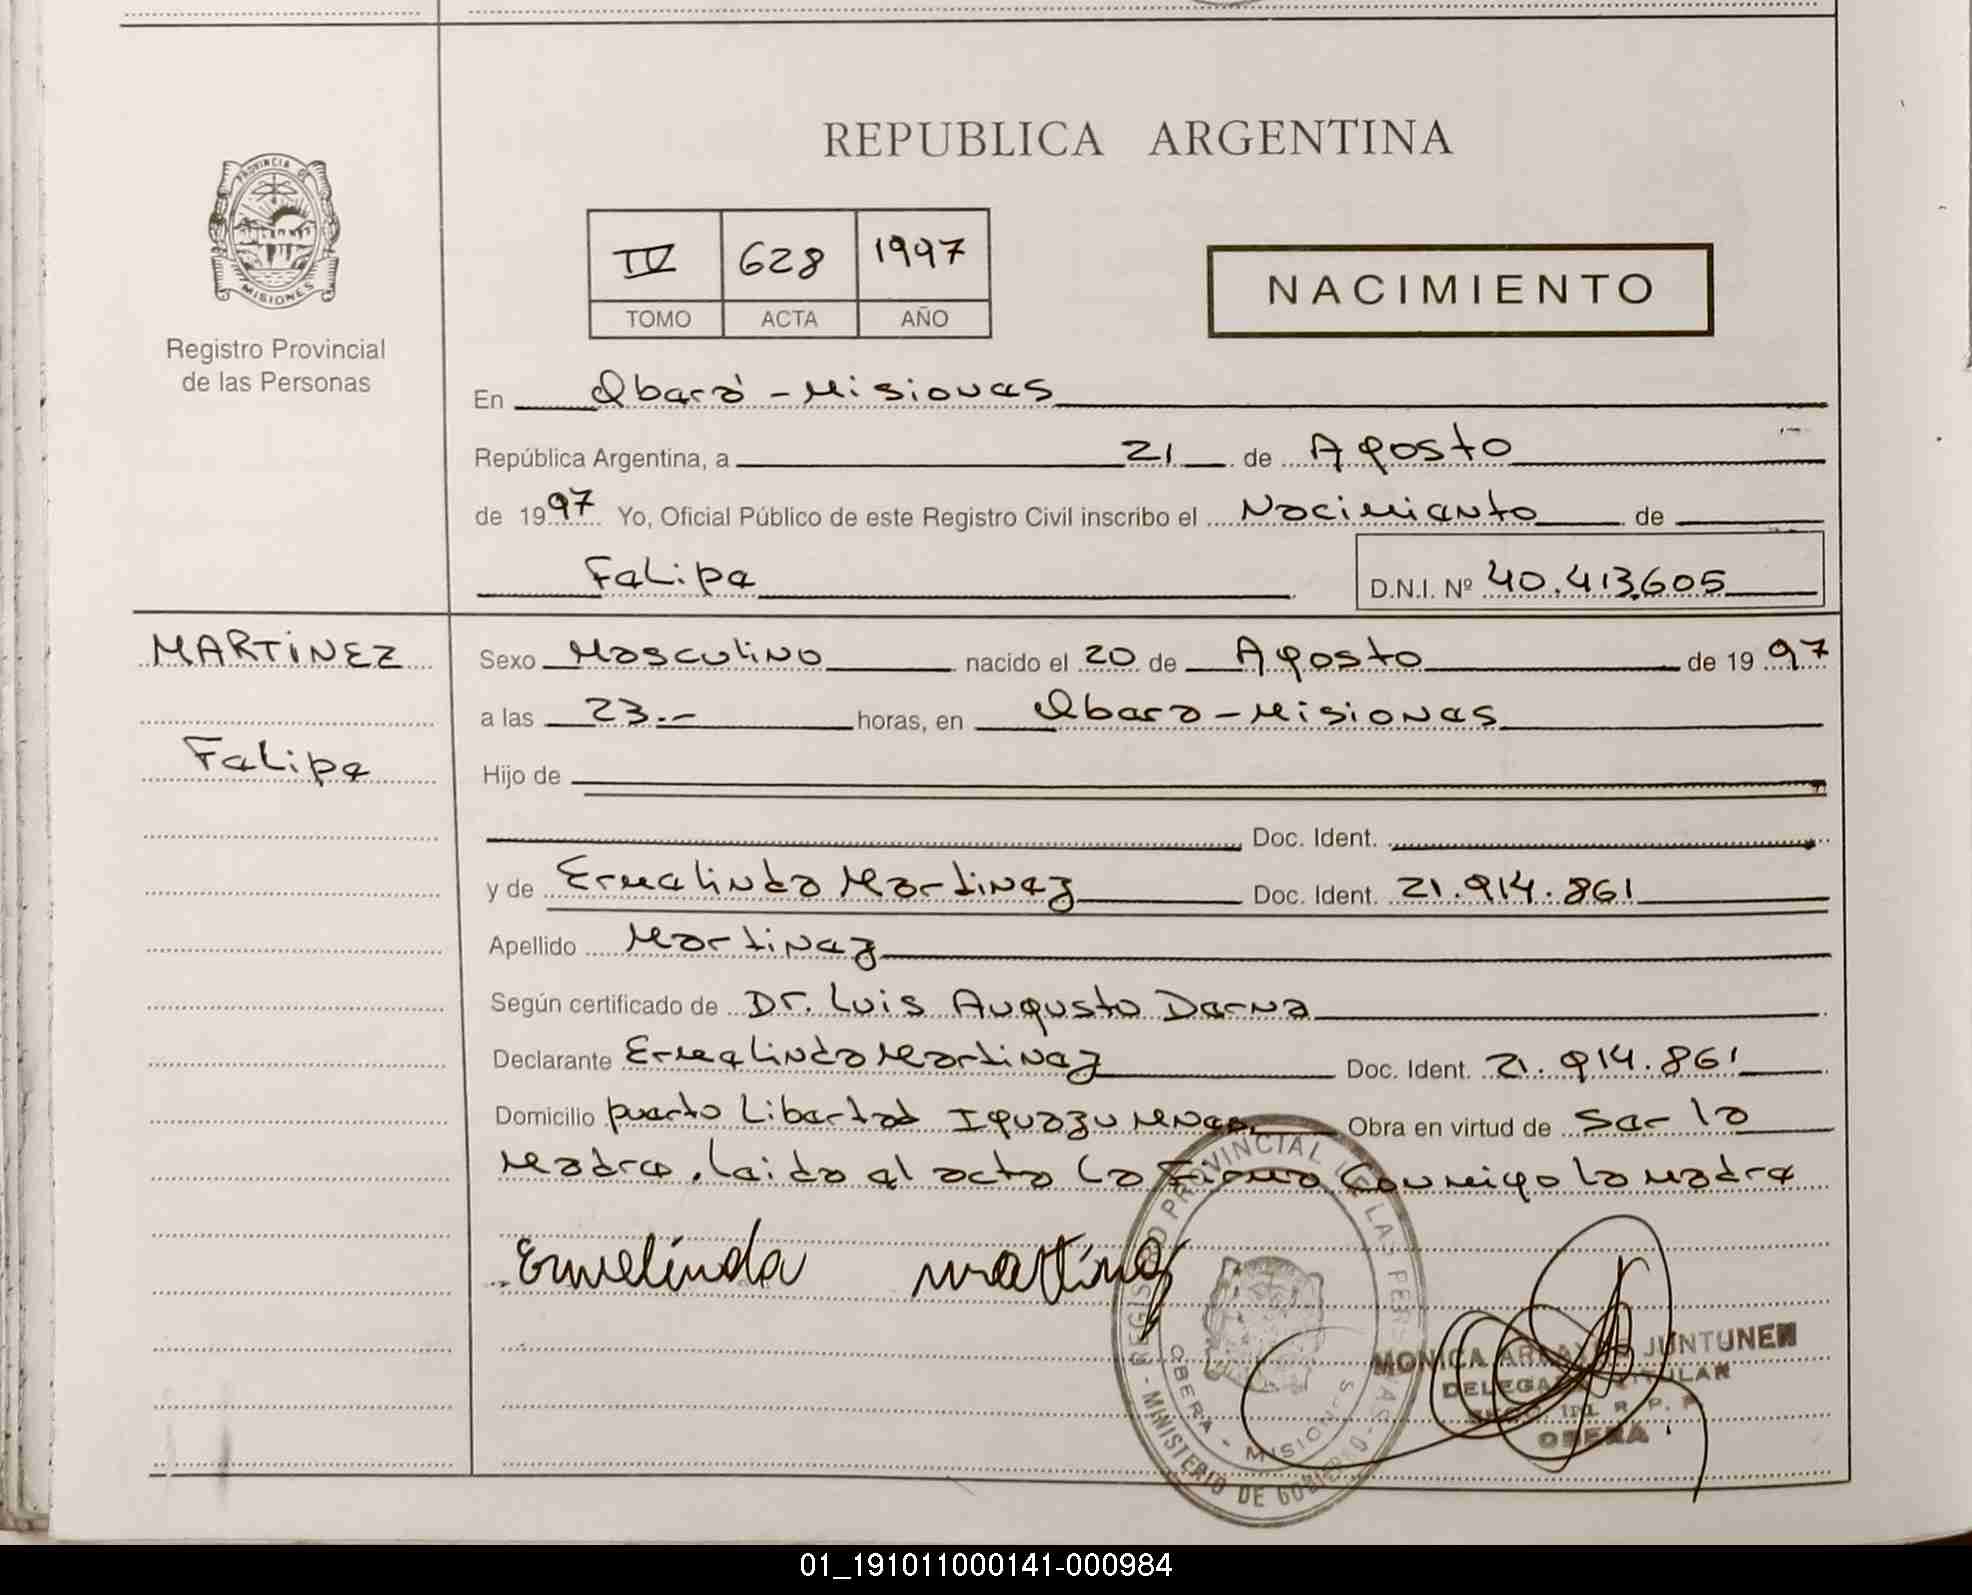 REPUBLICA ARGENTINA
PROVINCIA DE
MISIONES
Registro Provincial
de las Personas
IV 628 1997
TOMO ACTA AÑO
NACIMIENTO
En Oberá - Misiones
República Argentina, a 21 de Agosto
de 1997 Yo, Oficial Público de este Registro Civil inscribo el Nacimiento de
Felipe D.N.I. Nº 40.413.605
MARTINEZ
Felipe
Sexo Masculino nacido el 20 de Agosto de 1997
a las 23.- horas, en Obera - Misiones
Hijo de
Doc. Ident.
y de Ermelinda Martinez Doc. Ident. 21.914.861
Apellido Martinez
Según certificado de Dr. Luis Augusto Derna
Declarante Ermelinda Martinez Doc. Ident. 21.914.861
Domicilio puerto Libertad Iguazu Mnes. Obra en virtud de Ser la
Madre. Leida el acta La Firma Conmigo la madre
Ermelinda Martinez
REGISTRO PROVINCIAL DE LAS PERSONAS - MINISTERIO DE GOBIERNO
OBERA - MISIONES
MONICA JUNTUNEN
DELEGADA TITULAR
R. P. P.
OBERA
01_191011000141-000984